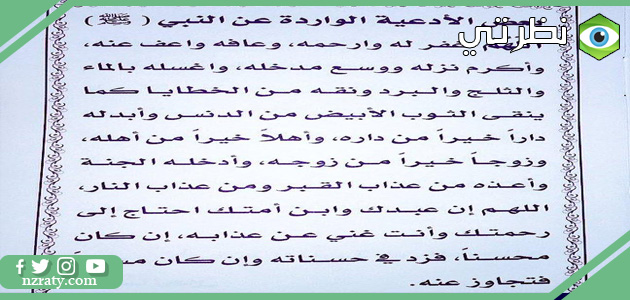 الأدعية الواردة عن النبي ( ﷺ )
نظرتي
اللهم اغفر له وارحمه، وعافه واعف عنه،
وأكرم نزله ووسع مدخله، واغسله بالماء
والثلج والبرد ونقه من الخطايا كما
ينقى الثوب الأبيض من الدنس وأبدله
داراً خيراً من داره، وأهلاً خيراً من أهله،
وزوجاً خيراً من زوجه، وأدخله الجنة
وأعذه من عذاب القبر ومن عذاب النار،
اللهم إن عبدك وابن أمتك احتاج إلى
رحمتك وأنت غني عن عذابه، إن كان
محسناً، فزد في حسناته وإن كان
فتجاوز عنه.
nzraty.com